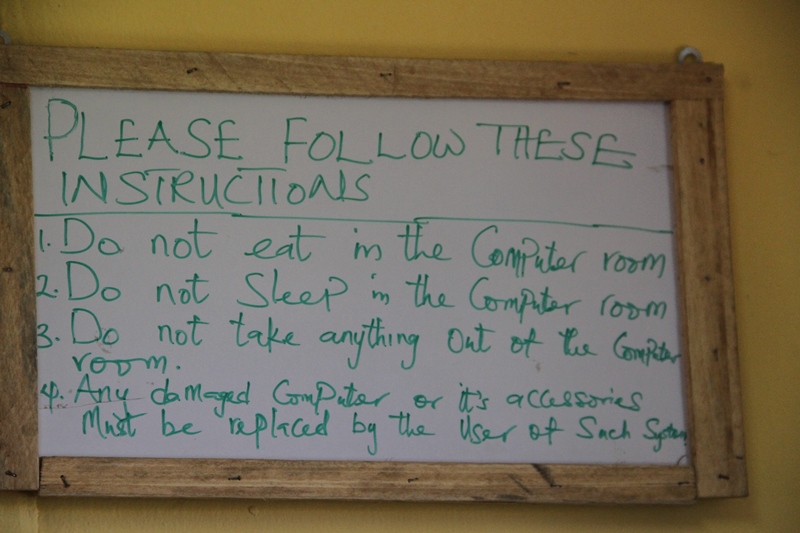 PLEASE FOLLOW THESE
INSTRUCTIONS
1. Do not eat in the Computer room
2. Do not Sleep in the Computer room
3. Do not take anything out of the Computer
room.
4. Any damaged Computer or it's accessories
Must be replaced by the User of Such System